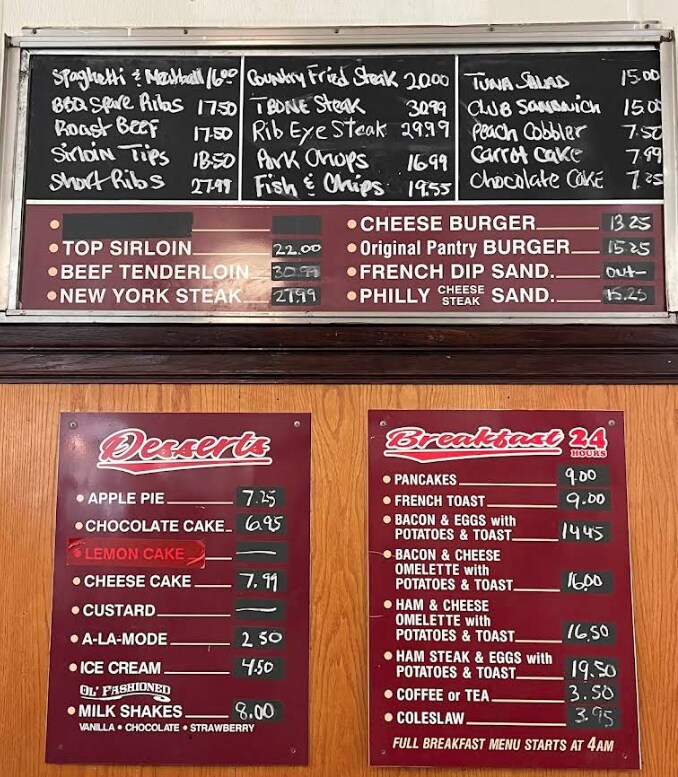 Spaghetti & Meatball 16.00
BBQ Spare Ribs 17.50
Roast Beef 17.50
Sirloin Tips 18.50
Short Ribs 27.99
Country Fried Steak 20.00
T BONE Steak 30.99
Rib Eye Steak 29.99
Pork Chops 16.99
Fish & Chips 19.55
TUNA SALAD 15.00
CLUB SANDWICH 15.00
Peach Cobbler 7.50
Carrot Cake 7.99
Chocolate Cake 7.25
TOP SIRLOIN 22.00
BEEF TENDERLOIN 30.99
NEW YORK STEAK 27.99
CHEESE BURGER 13.25
Original Pantry BURGER 15.25
FRENCH DIP SAND. OUT
PHILLY CHEESE STEAK SAND. 15.25
Desserts
APPLE PIE 7.25
CHOCOLATE CAKE 6.95
LEMON CAKE —
CHEESE CAKE 7.99
CUSTARD —
A-LA-MODE 2.50
ICE CREAM 4.50
OL' FASHIONED
MILK SHAKES 8.00
VANILLA • CHOCOLATE • STRAWBERRY
Breakfast 24 HOURS
PANCAKES 9.00
FRENCH TOAST 9.00
BACON & EGGS with
POTATOES & TOAST 14.45
BACON & CHEESE
OMELETTE with
POTATOES & TOAST 16.00
HAM & CHEESE
OMELETTE with
POTATOES & TOAST 16.50
HAM STEAK & EGGS with
POTATOES & TOAST 19.50
COFFEE or TEA 3.50
COLESLAW 3.95
FULL BREAKFAST MENU STARTS AT 4AM